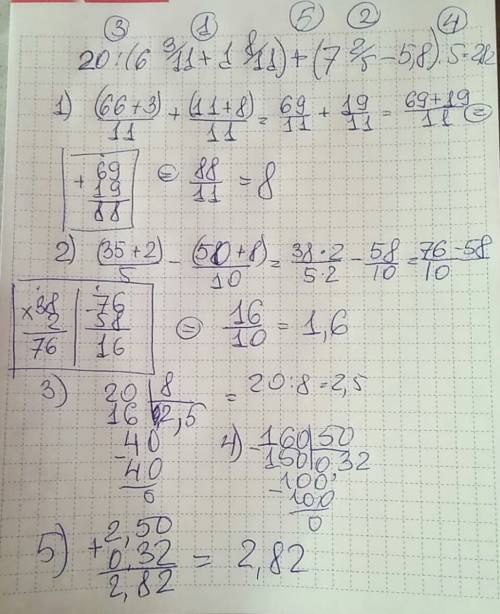 ③ ① ⑤ ② ④
20:(6 3/11 + 1 8/11) + (7 2/5 - 5,8) . 5 = 2,82
1) (66+3)/11 + (11+8)/11 = 69/11 + 19/11 = (69+19)/11 =
+ 69 19 88 = 88/11 = 8
2) (35+2)/5 - (50+8)/10 = (38·2)/(5·2) - 58/10 = (76-58)/10
×38 2 76 | -76 58 16 = 16/10 = 1,6
3) 20 | 8 = 20:8=2,5
16 2,5
-40
40
0
4) -160 | 50
150 0,32
100
-100
0
5) + 2,50 0,32 2,82 = 2,82